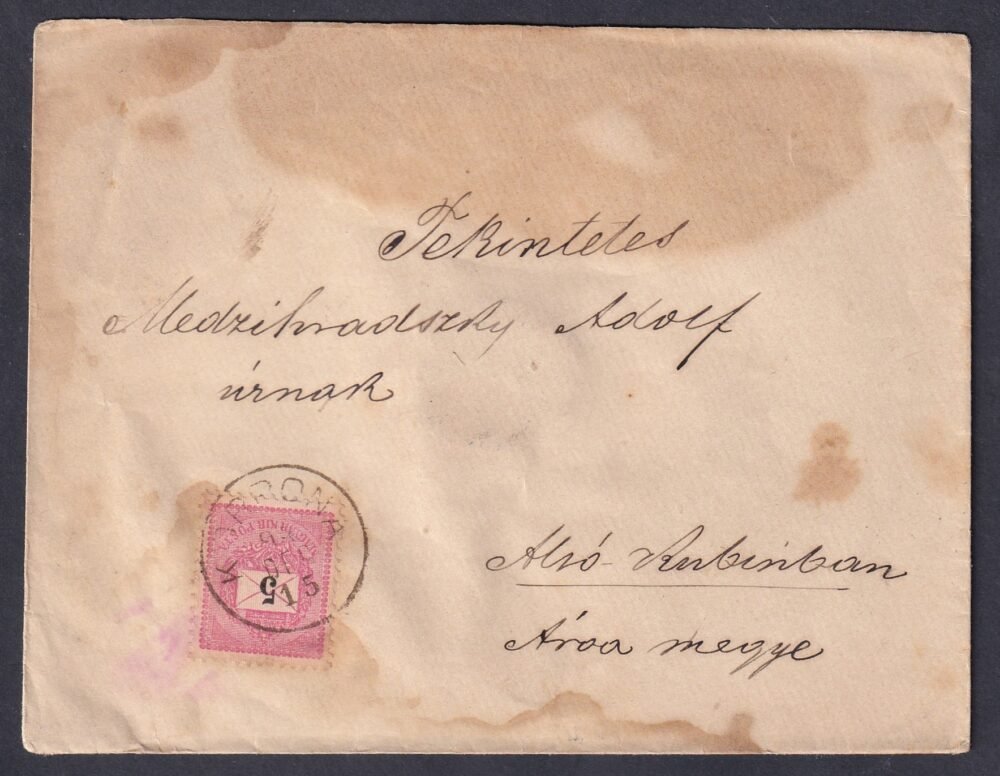 Tekintetes
Medzihradszky Adolf
úrnak
Alsó-Kubinban
Árva megye
5
15